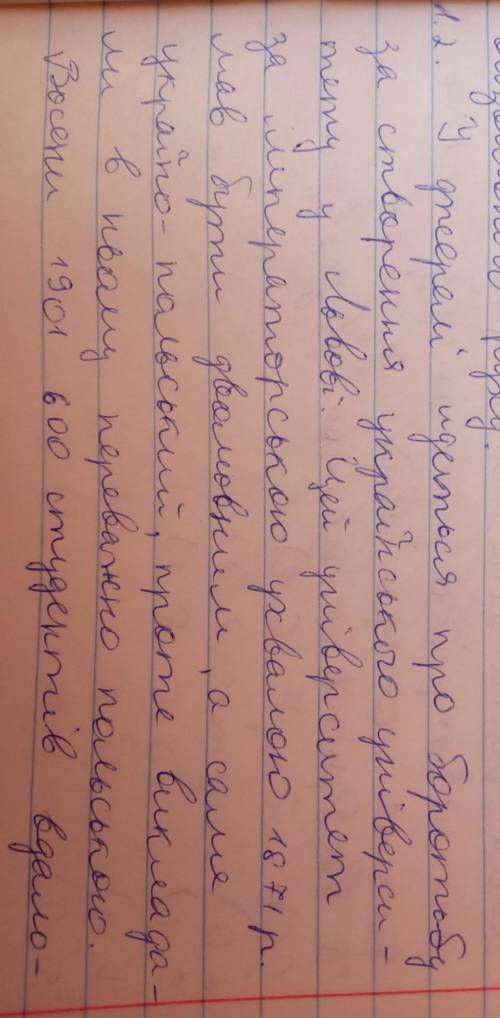 руху.
1.2. У джерелі йдеться про боротьбу
за створення українського універси-
тету у Львові. Цей університет
за імператорською ухвалою 1871 р.
мав бути двомовним, а саме
україно-польський, проте виклада-
ли в ньому переважно польською.
Восени 1901 600 студентів вдало-